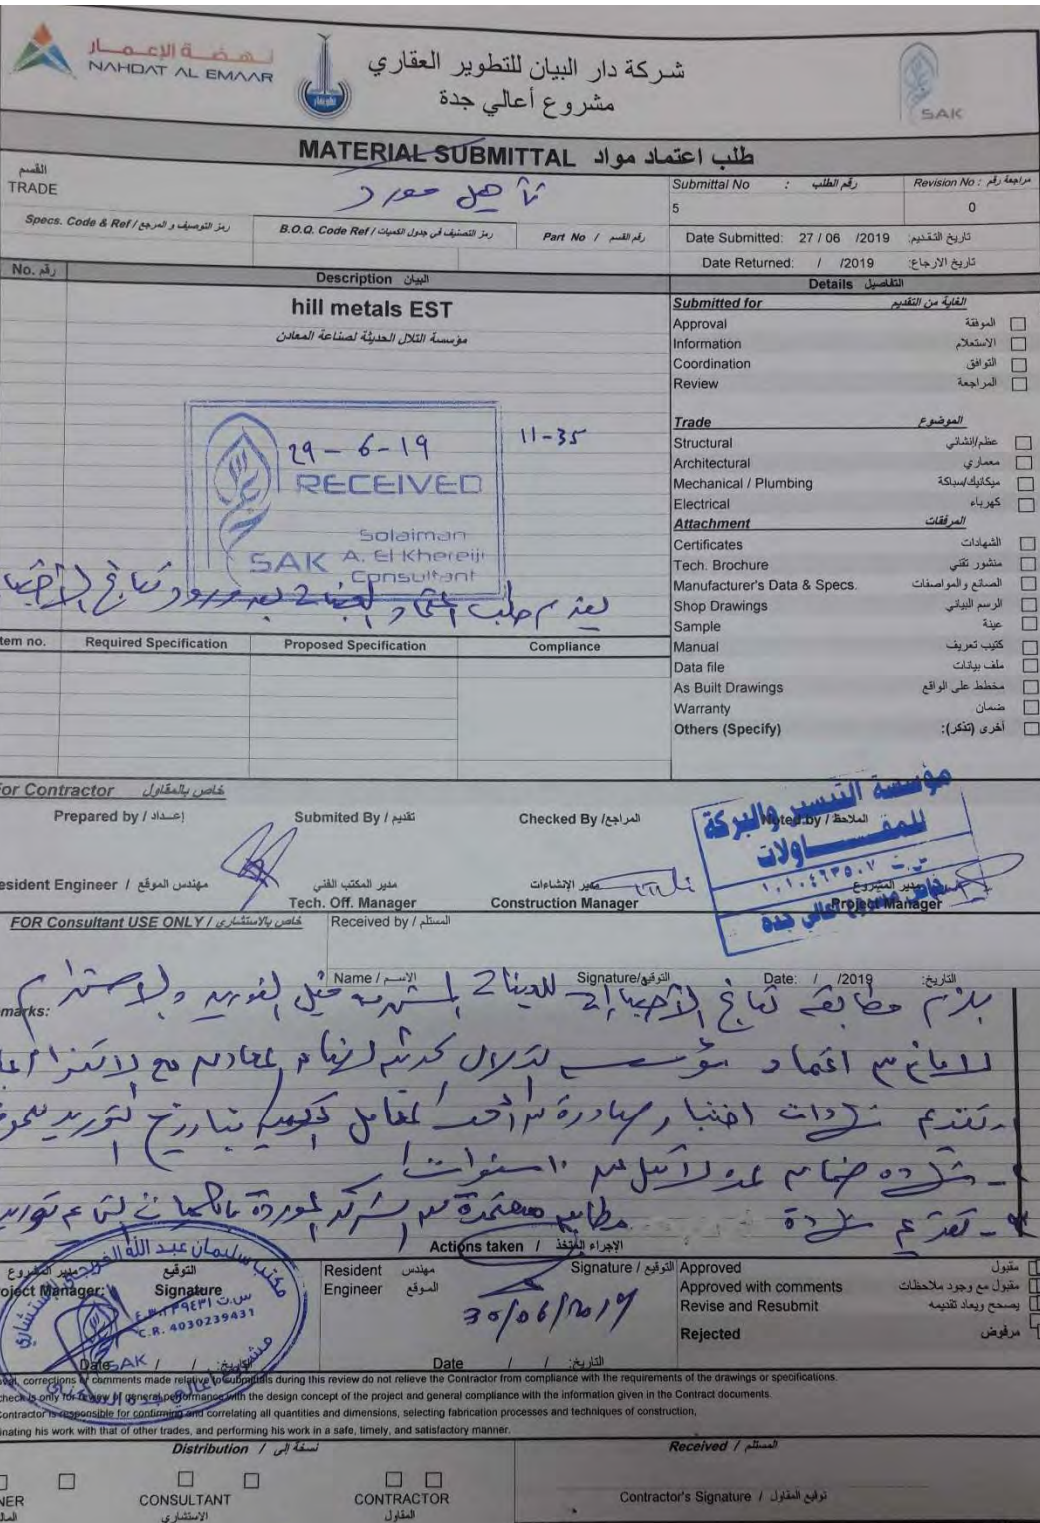 نهضة الإعمار
NAHDAT AL EMAAR
شركة دار البيان للتطوير العقاري
مشروع أعالي جدة
SAK
MATERIAL SUBMITTAL طلب اعتماد مواد
القسم
TRADE
تأهيل مورد
Submittal No : رقم الطلب
Revision No : مراجعة رقم
5
0
Specs. Code & Ref / رمز التوصيف و المرجع
B.O.Q. Code Ref / رمز التصنيف في جدول الكميات
Part No / رقم القسم
Date Submitted: 27 / 06 /2019 تاريخ التقديم:
Date Returned: / /2019 تاريخ الارجاع:
No. رقم
Description البيان
Details التفاصيل
hill metals EST
مؤسسة التلال الحديثة لصناعة المعادن
Submitted for الغاية من التقديم
Approval الموفقة
Information الاستعلام
Coordination التوافق
Review المراجعة
Trade الموضوع
Structural عظم/إنشائي
Architectural معماري
Mechanical / Plumbing ميكانيك/سباكة
Electrical كهرباء
Attachment المرفقات
Certificates الشهادات
Tech. Brochure منشور تقني
Manufacturer's Data & Specs. الصانع والمواصفات
Shop Drawings الرسم البياني
Sample عينة
Manual كتيب تعريف
Data file ملف بيانات
As Built Drawings مخطط على الواقع
Warranty ضمان
Others (Specify) أخرى (تذكر):
29 - 6 - 19
11-35
RECEIVED
Solaiman
SAK A. El Khereiji
Consultant
يقدم طلب
tem no.
Required Specification
Proposed Specification
Compliance
or Contractor خاص بالمقاول
Prepared by / إعداد
Submited By / تقديم
Checked By /المراجع
Noted by / الملاحظ
مؤسسة التيسير والبركة
للمقاولات
esident Engineer / مهندس الموقع
مدير المكتب الفني
Tech. Off. Manager
مدير الإنشاءات
Construction Manager
مدير المشروع
Project Manager
FOR Consultant USE ONLY / خاص بالاستشاري
Received by / المستلم
Name / الإسم
Signature/التوقيع
Date: / /2019 التاريخ:
marks:
يلزم مطابقة نتائج
لا مانع من اعتماد مؤسسة
شهادات اختبار صادرة
شهادة ضمان لمدة لا تقل عن 10 سنوات
تقديم شهادة
Actions taken / الإجراء المتخذ
مدير المشروع
oject Manager:
التوقيع
Signature
Resident مهندس
Engineer الموقع
Signature / التوقيع
30/06/2019
Approved مقبول
Approved with comments مقبول مع وجود ملاحظات
Revise and Resubmit يصحح ويعاد تقديمه
Rejected مرفوض
C.R. 4030239431
SAK
Date / / التاريخ:
Date / / التاريخ:
corrections or comments made relative to submittals during this review do not relieve the Contractor from compliance with the requirements of the drawings or specifications.
check is only for review of general performance with the design concept of the project and general compliance with the information given in the Contract documents.
Contractor is responsible for confirming and correlating all quantities and dimensions, selecting fabrication processes and techniques of construction,
inating his work with that of other trades, and performing his work in a safe, timely, and satisfactory manner.
Distribution / نسخة إلى
Received / المستلم
NER
CONSULTANT
الاستشاري
CONTRACTOR
المقاول
Contractor's Signature / توقيع المقاول